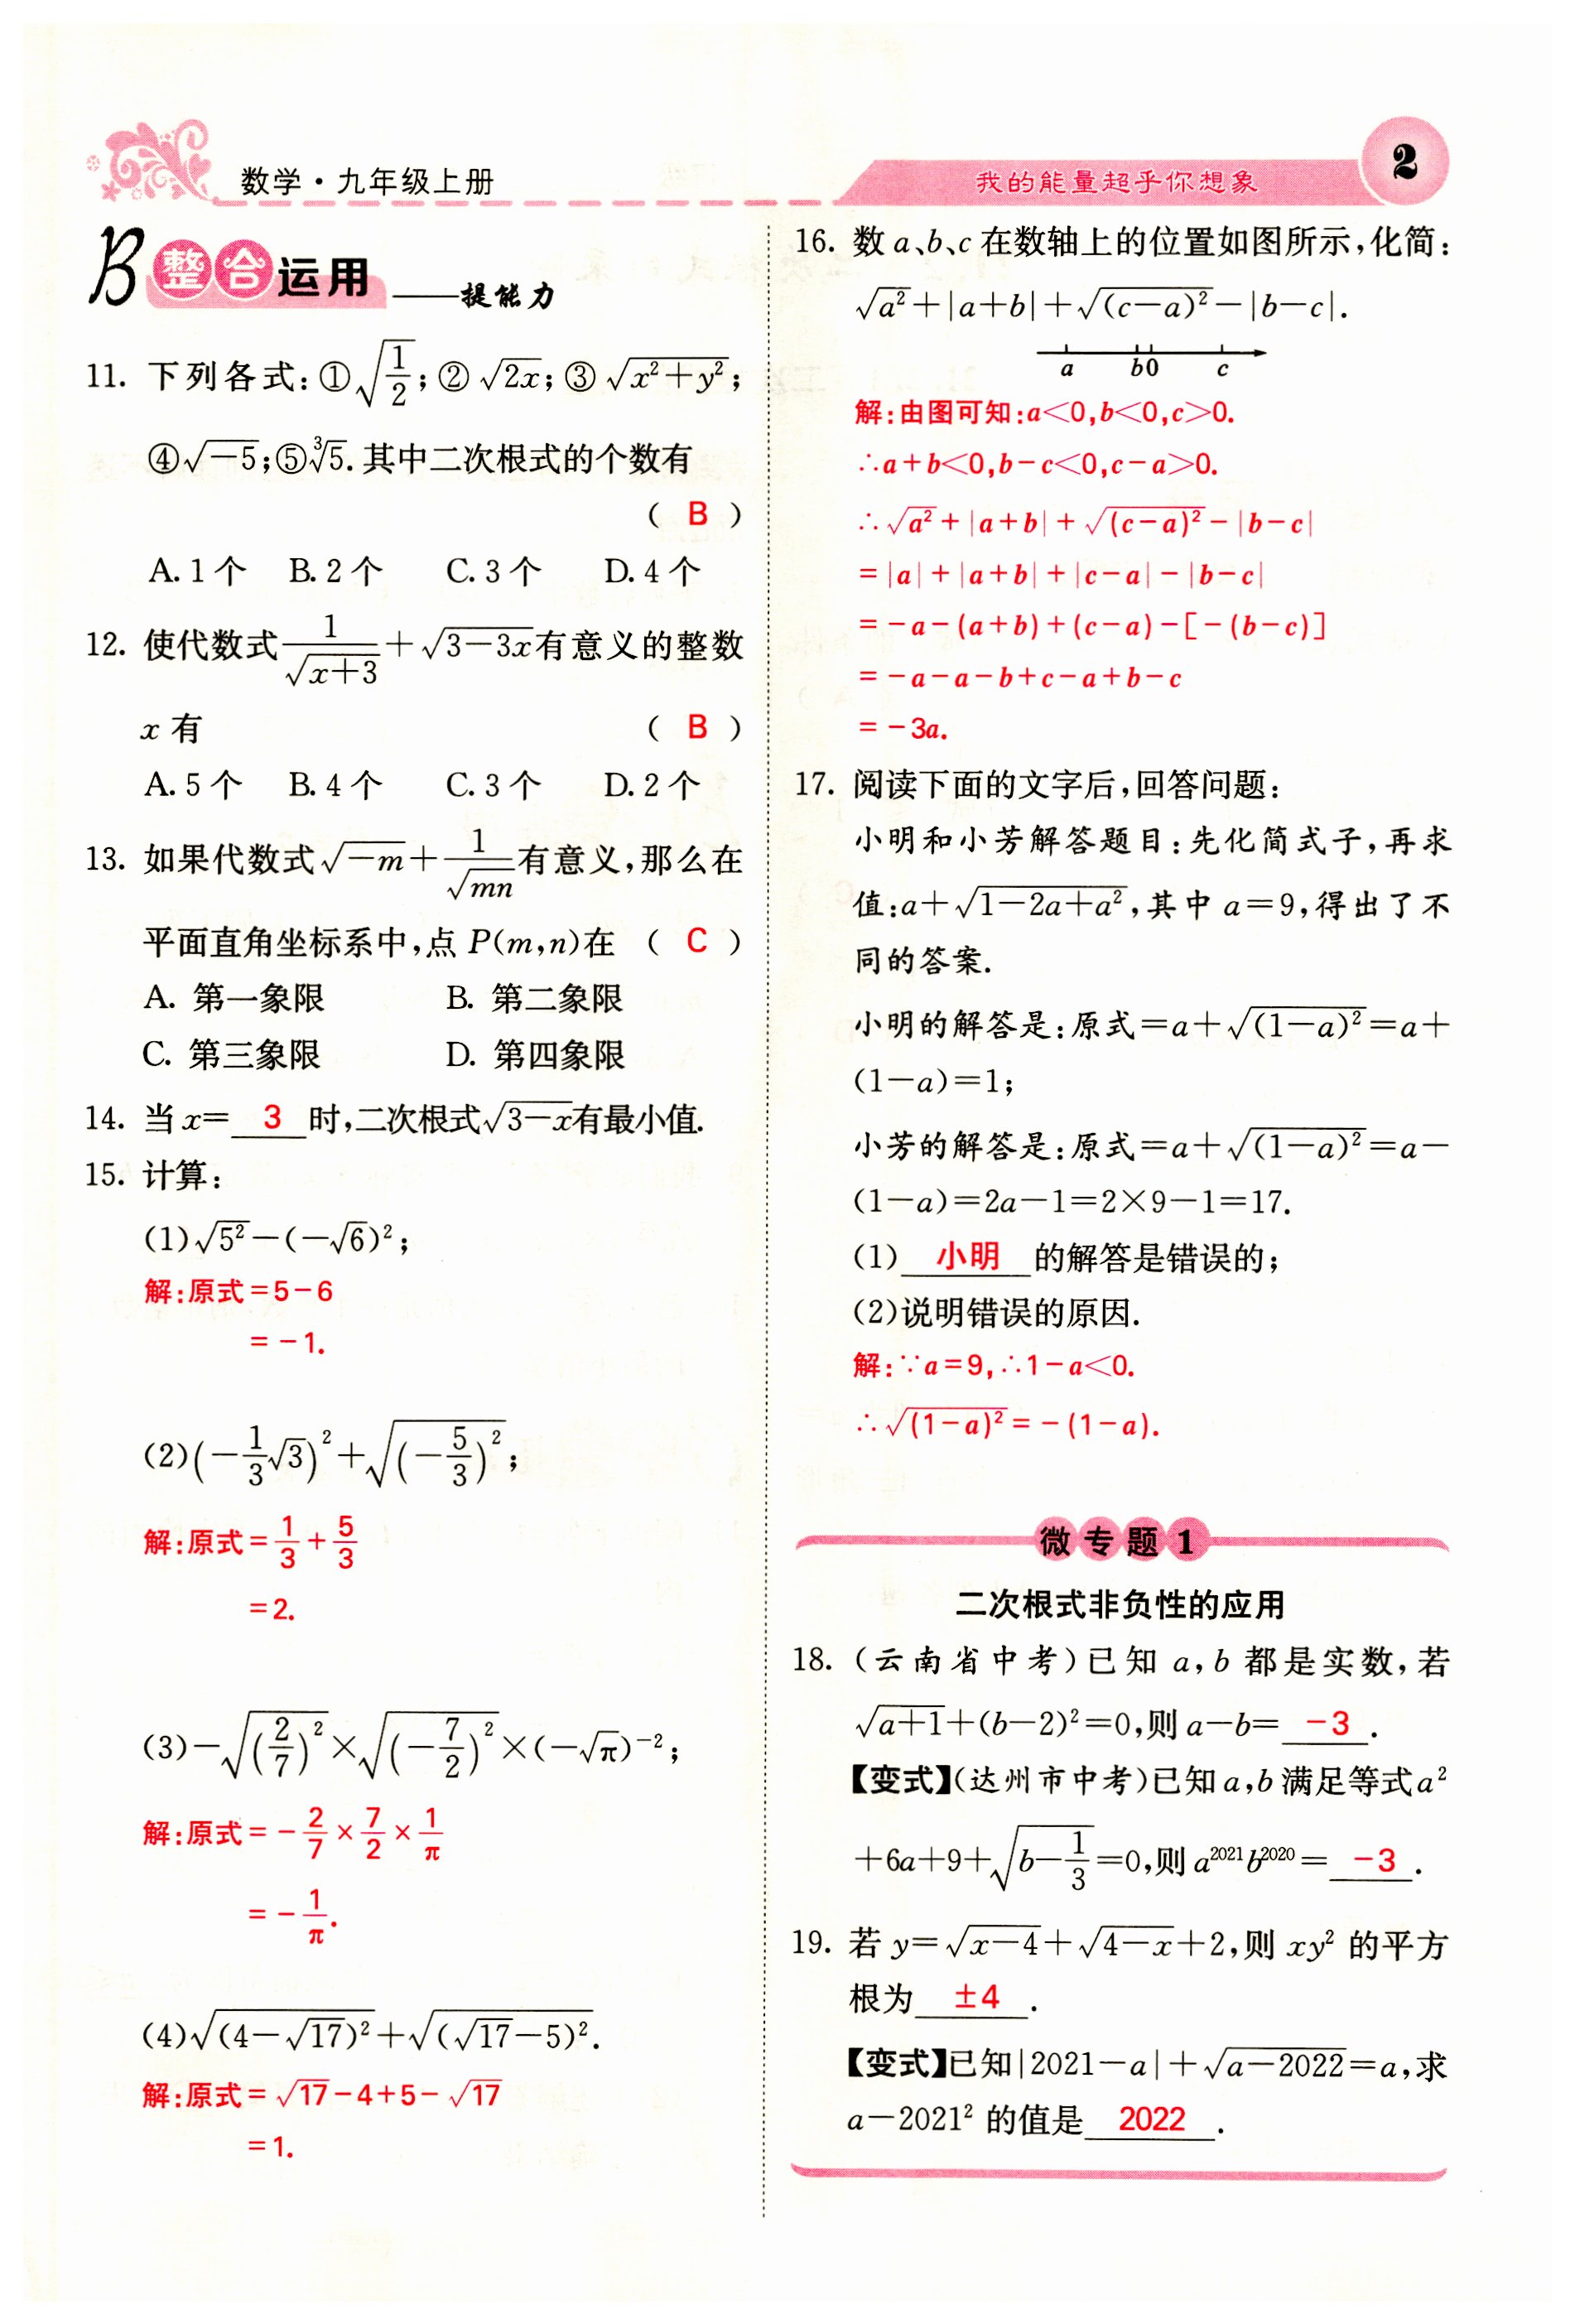 数学·九年级上册
我的能量超乎你想象
2
B 整合运用——提能力
11. 下列各式:①√(1/2);②√(2x);③√(x²+y²);
④√(-5);⑤∛5.其中二次根式的个数有
( B )
A. 1个 B. 2个 C. 3个 D. 4个
12. 使代数式1/√(x+3)+√(3-3x)有意义的整数
x有 ( B )
A. 5个 B. 4个 C. 3个 D. 2个
13. 如果代数式√(-m)+1/√(mn)有意义,那么在
平面直角坐标系中,点P(m,n)在 ( C )
A. 第一象限 B. 第二象限
C. 第三象限 D. 第四象限
14. 当x= 3 时,二次根式√(3-x)有最小值.
15. 计算:
(1)√(5²)-(-√6)²;
解:原式=5-6
=-1.
(2)(-(1/3)√3)²+√((-5/3)²);
解:原式=1/3+5/3
=2.
(3)-√((2/7)²)×√((-7/2)²)×(-√π)⁻²;
解:原式=-2/7×7/2×1/π
=-1/π.
(4)√((4-√17)²)+√((√17-5)²).
解:原式=√17-4+5-√17
=1.
16. 数a、b、c在数轴上的位置如图所示,化简:
√(a²)+|a+b|+√((c-a)²)-|b-c|.
a b0 c
解:由图可知:a<0,b<0,c>0.
∴a+b<0,b-c<0,c-a>0.
∴√(a²)+|a+b|+√((c-a)²)-|b-c|
=|a|+|a+b|+|c-a|-|b-c|
=-a-(a+b)+(c-a)-[-(b-c)]
=-a-a-b+c-a+b-c
=-3a.
17. 阅读下面的文字后,回答问题:
小明和小芳解答题目:先化简式子,再求
值:a+√(1-2a+a²),其中a=9,得出了不
同的答案.
小明的解答是:原式=a+√((1-a)²)=a+
(1-a)=1;
小芳的解答是:原式=a+√((1-a)²)=a-
(1-a)=2a-1=2×9-1=17.
(1) 小明 的解答是错误的;
(2)说明错误的原因.
解:∵a=9,∴1-a<0.
∴√((1-a)²)=-(1-a).
微专题1
二次根式非负性的应用
18. (云南省中考)已知a,b都是实数,若
√(a+1)+(b-2)²=0,则a-b= -3 .
【变式】(达州市中考)已知a,b满足等式a²
+6a+9+√(b-1/3)=0,则a²⁰²¹b²⁰²⁰= -3 .
19. 若y=√(x-4)+√(4-x)+2,则xy²的平方
根为 ±4 .
【变式】已知|2021-a|+√(a-2022)=a,求
a-2021²的值是 2022 .